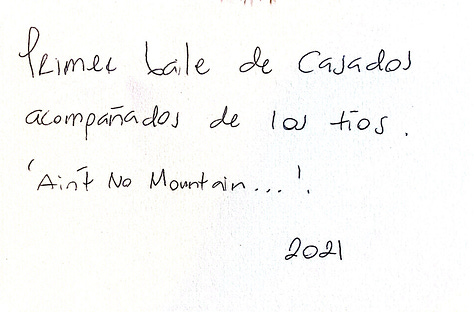 Primer baile de Casados
acompañados de los tíos.
'Ain't No Mountain...'.
2021